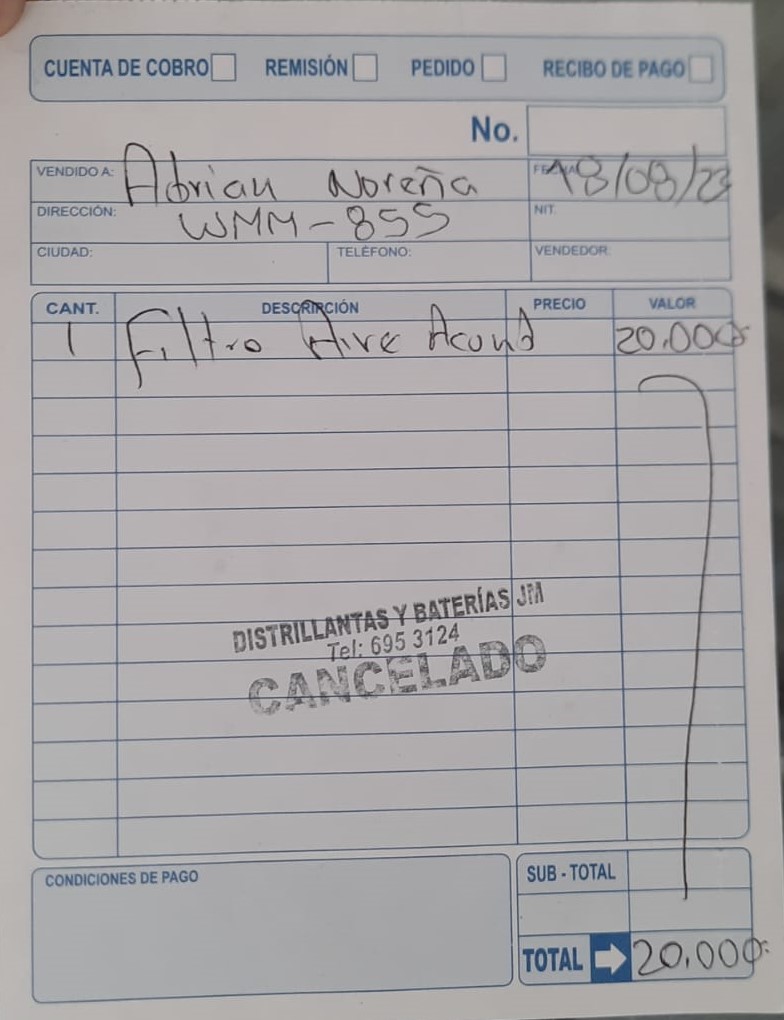 CUENTA DE COBRO REMISIÓN PEDIDO RECIBO DE PAGO
No.
VENDIDO A: Adrian Noreña FECHA: 18/08/23
DIRECCIÓN: WMM-855 NIT.
CIUDAD: TELÉFONO: VENDEDOR:
CANT. DESCRIPCIÓN PRECIO VALOR
1 Filtro Aire Acond 20.000
DISTRILLANTAS Y BATERÍAS JM
Tel: 695 3124
CANCELADO
CONDICIONES DE PAGO
SUB - TOTAL
TOTAL 20.000